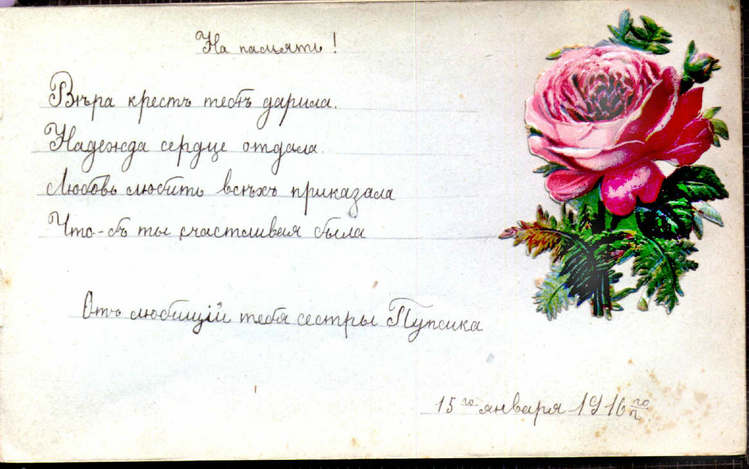 На память!
Вѣра крестъ тебѣ дарила.
Надежда сердце отдала.
Любовь любить всѣхъ приказала
Что-бъ ты счастливая была
Отъ любищій тебя сестры Пупсика
15го января 1916го